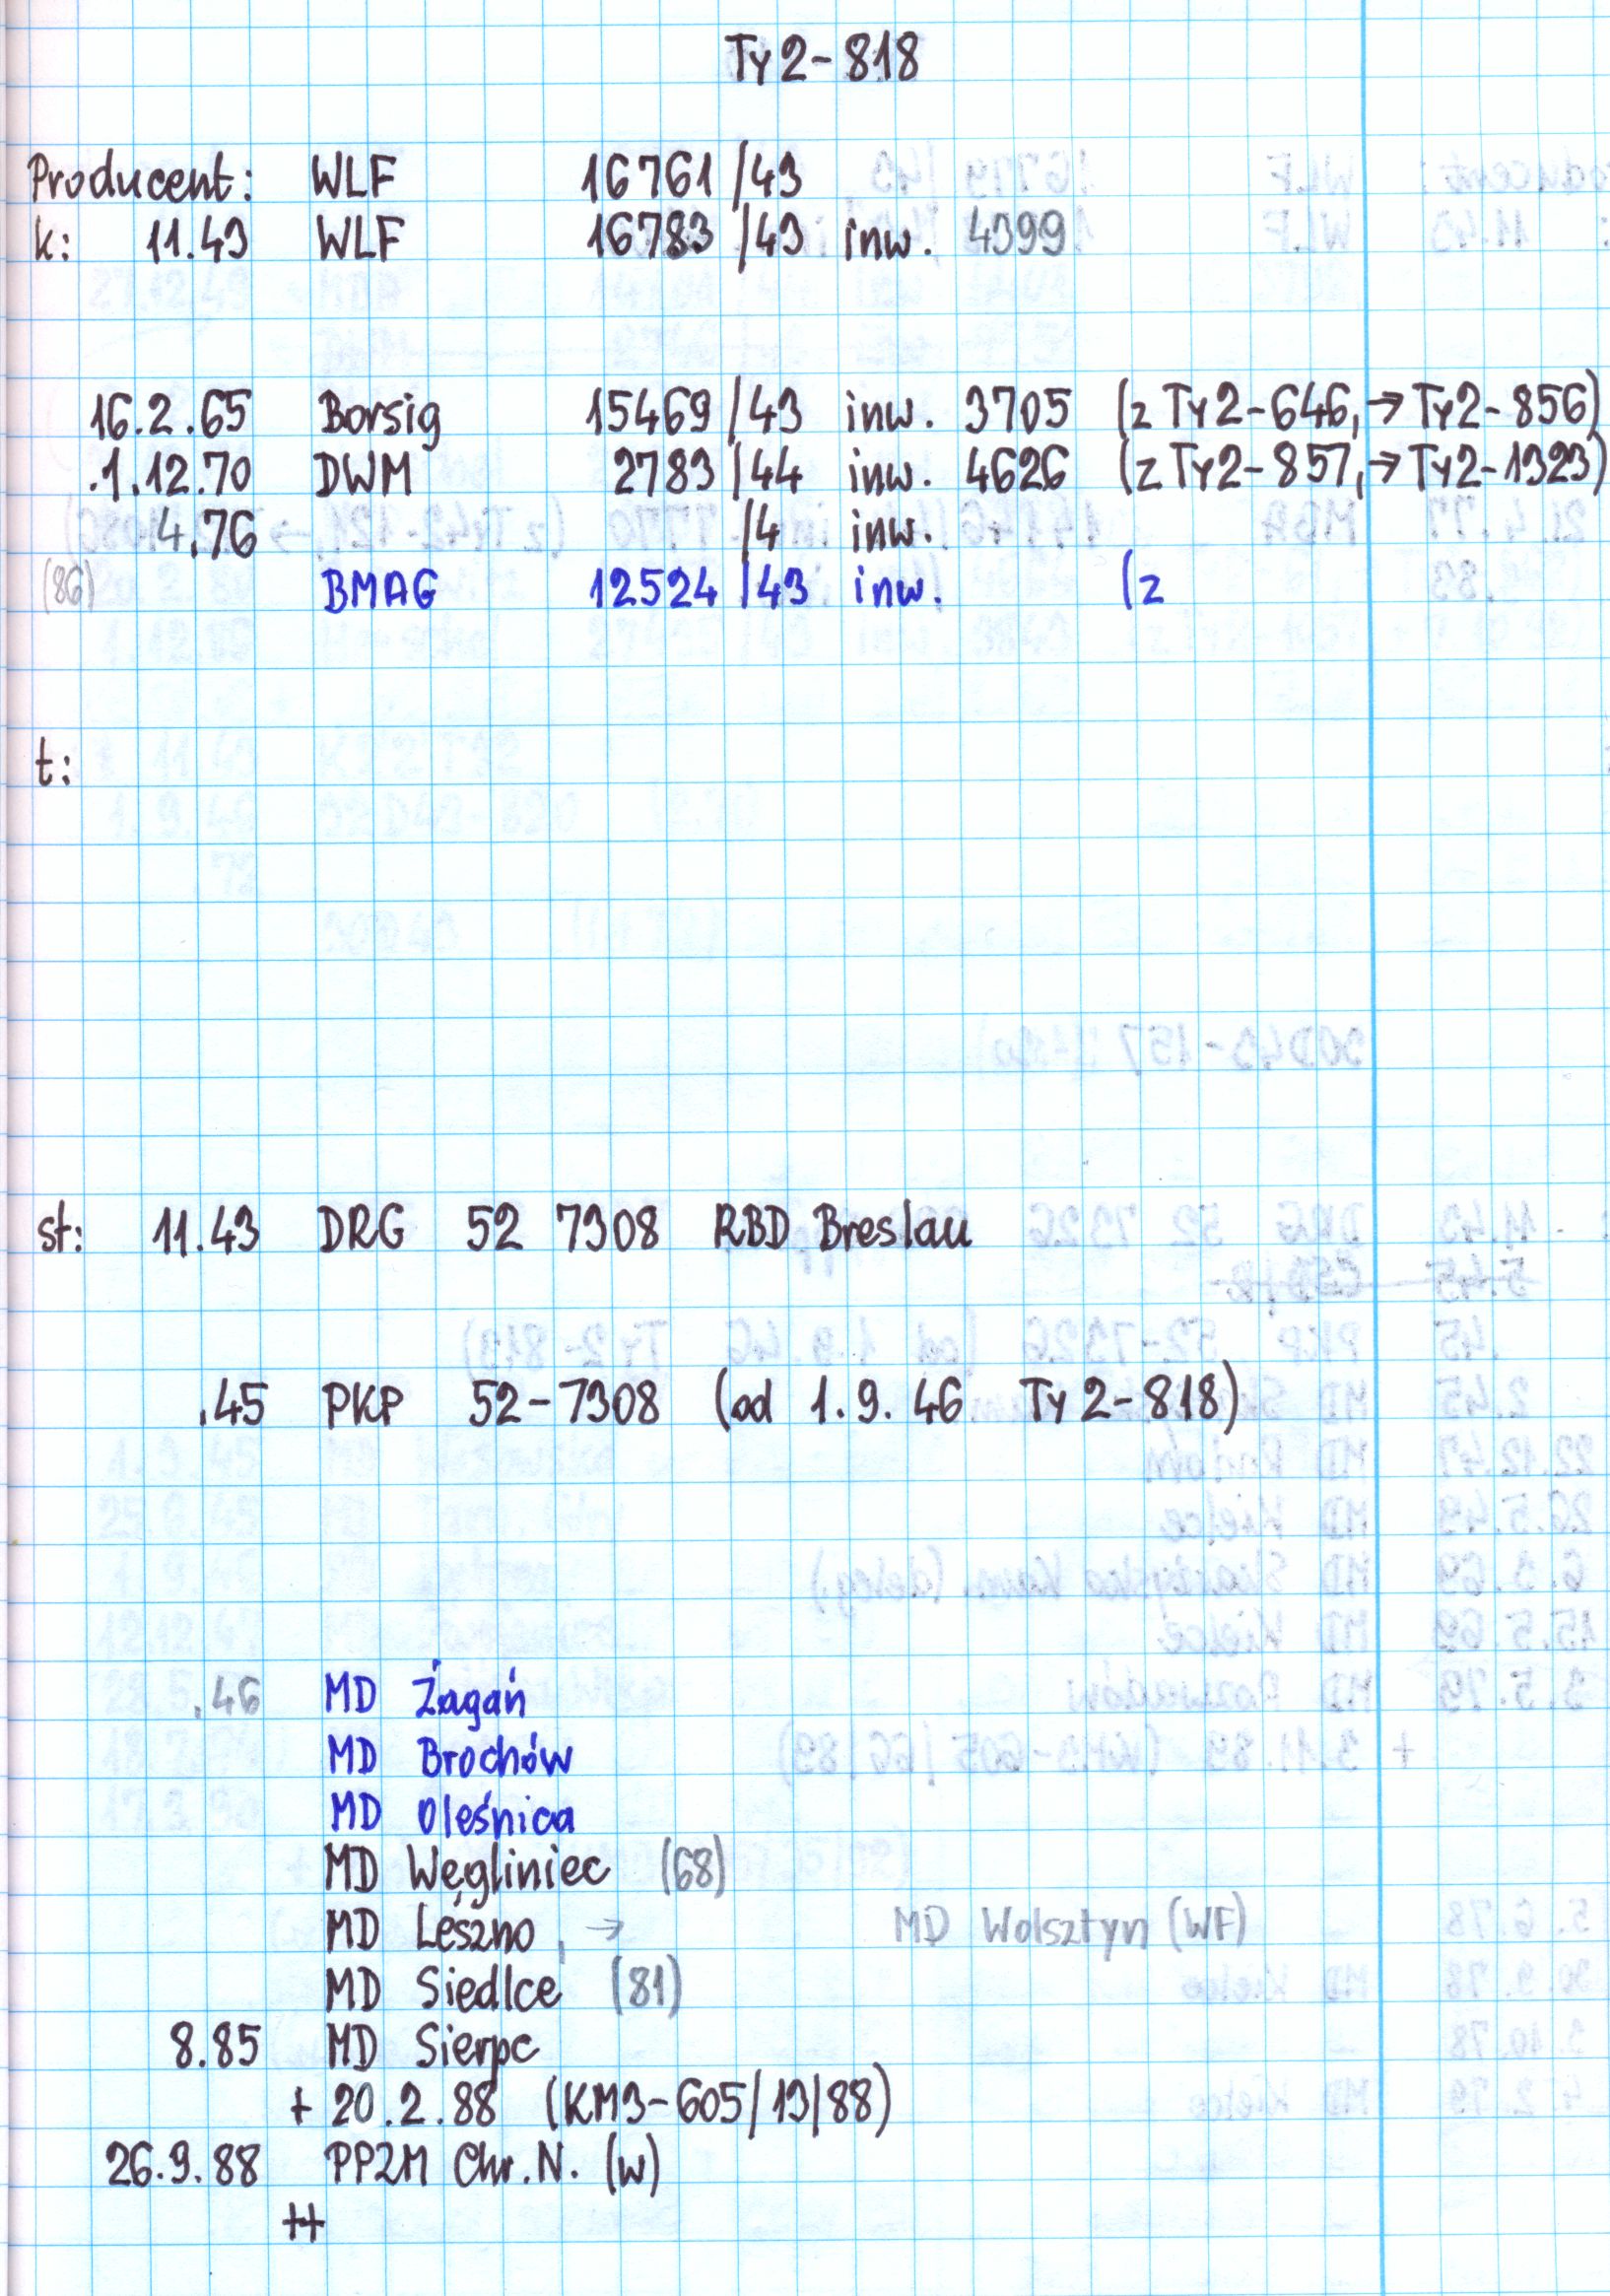 Ty2-818
Producent: WLF 16761/43
k: 11.43 WLF 16783/43 inw. 4399
16.2.65 Borsig 15469/43 inw. 3705 (z Ty2-646, → Ty2-856)
.1.12.70 DWM 2783/44 inw. 4626 (z Ty2-857, → Ty2-1323)
4.76 /4 inw.
(86) BMAG 12524/43 inw. (z
t:
st: 11.43 DRG 52 7308 RBD Breslau
.45 PKP 52-7308 (od 1.9.46 Ty2-818)
.46 MD Żagań
MD Brochów
MD Oleśnica
MD Węgliniec (68)
MD Leszno, → MD Wolsztyn (WF)
MD Siedlce (81)
8.85 MD Sierpc
+ 20.2.88 (KM3-605/13/88)
26.9.88 PPZM Chr.N. (w)
++